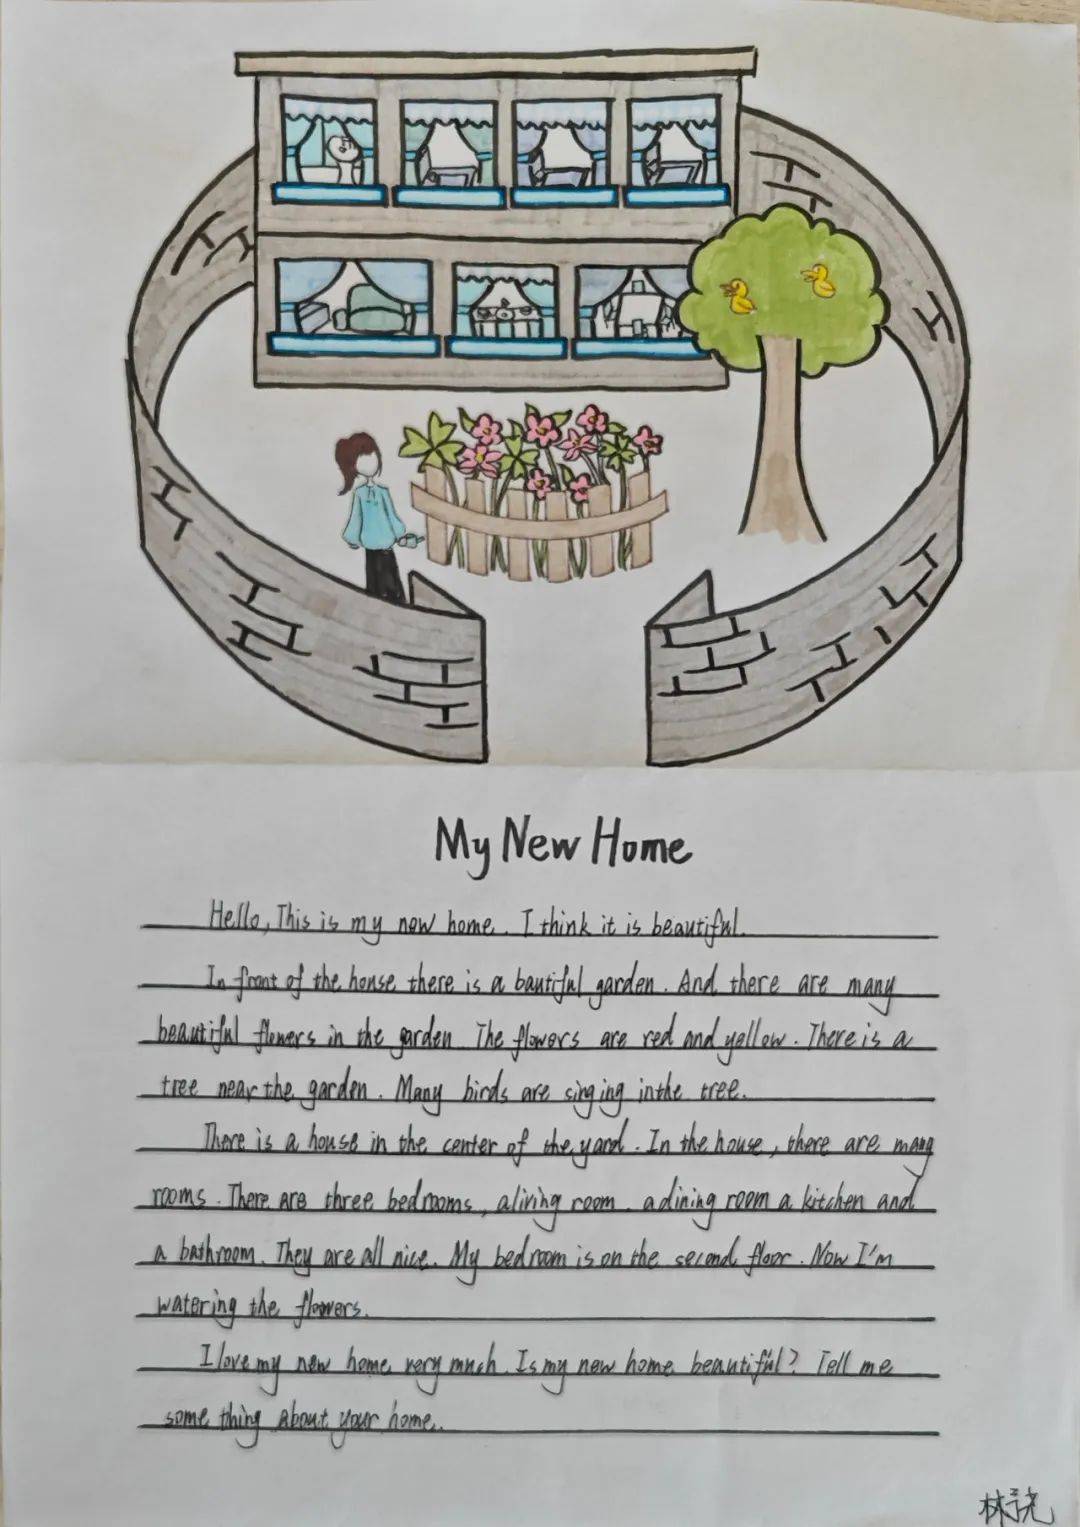 My New Home
Hello, This is my new home. I think it is beautiful.
In front of the house there is a bautiful garden. And there are many
beautiful flowers in the garden. The flowers are red and yellow. There is a
tree near the garden. Many birds are singing in the tree.
There is a house in the center of the yard. In the house, there are many
rooms. There are three bedrooms, a living room. a dining room a kitchen and
a bathroom. They are all nice. My bedroom is on the second floor. Now I'm
watering the flowers.
I love my new home very much. Is my new home beautiful? Tell me
some thing about your home.
林